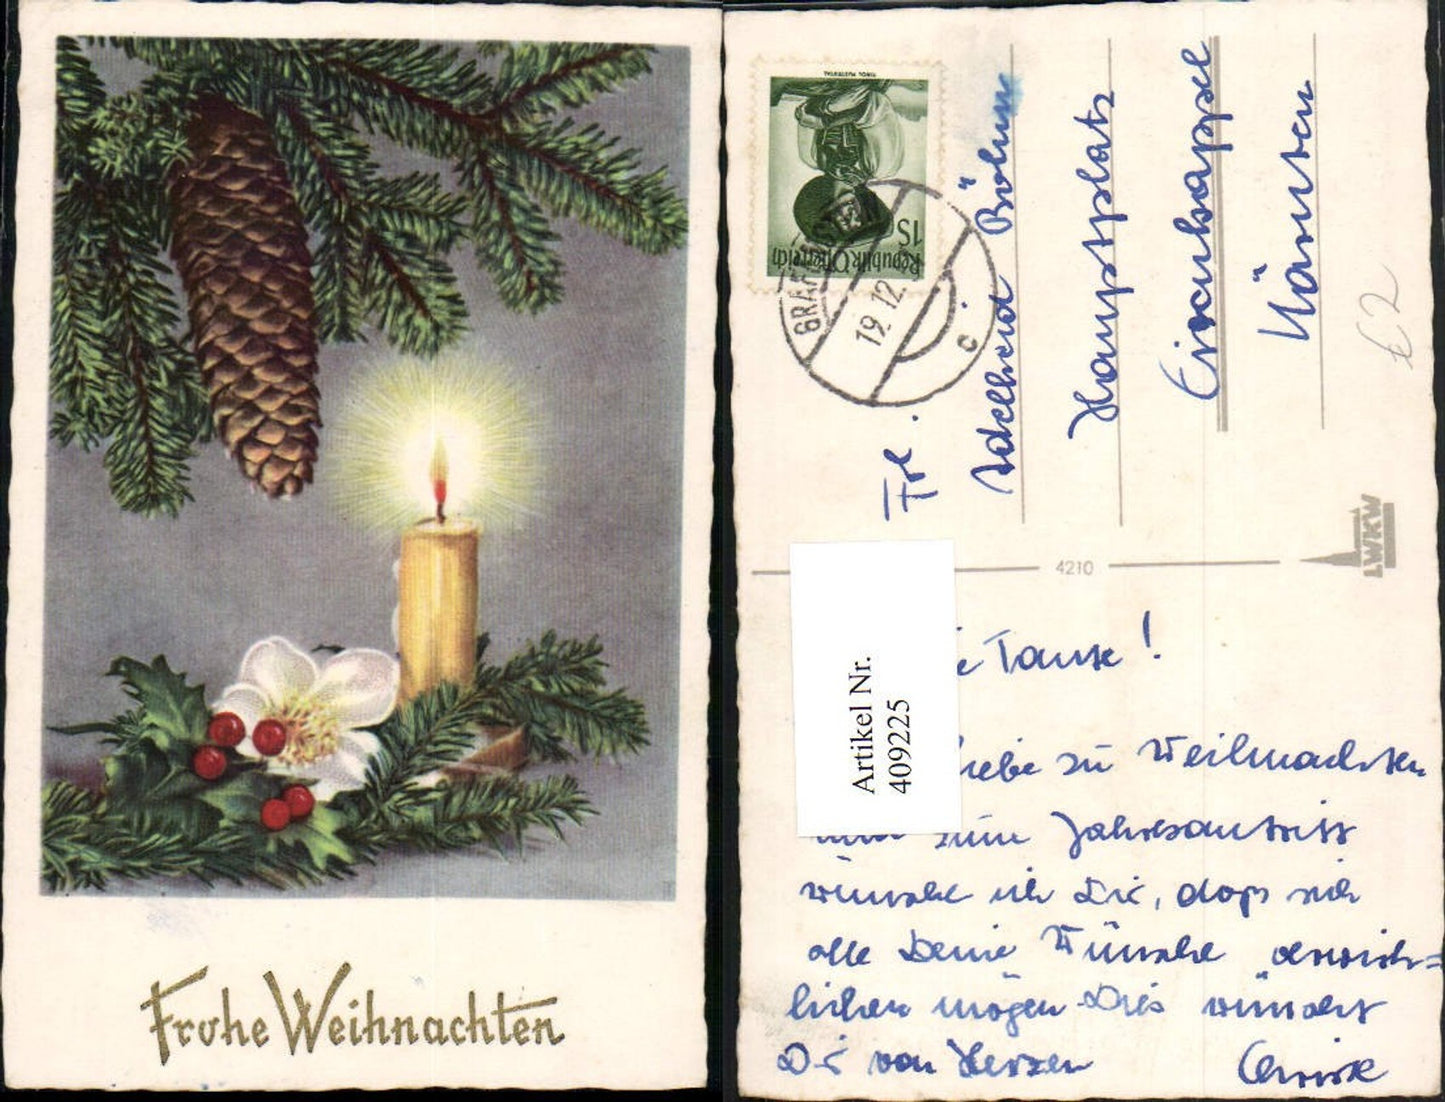 Frohe Weihnachten
TIROL PUSTERTAL
1S
Republik Österreich
19.12.
c
Frl.
Adelheid Böhm
Hauptplatz
Eisenkappel
Kärnten
€2
4210
LWKW
Artikel Nr.
409225
Tante!
Liebe zu Weihnachten
zum Jahresantritt
wünsche ich Dir, daß sich
alle Deine Wünsche verwirk=
lichen mögen. Dies wünscht
Dir von Herzen